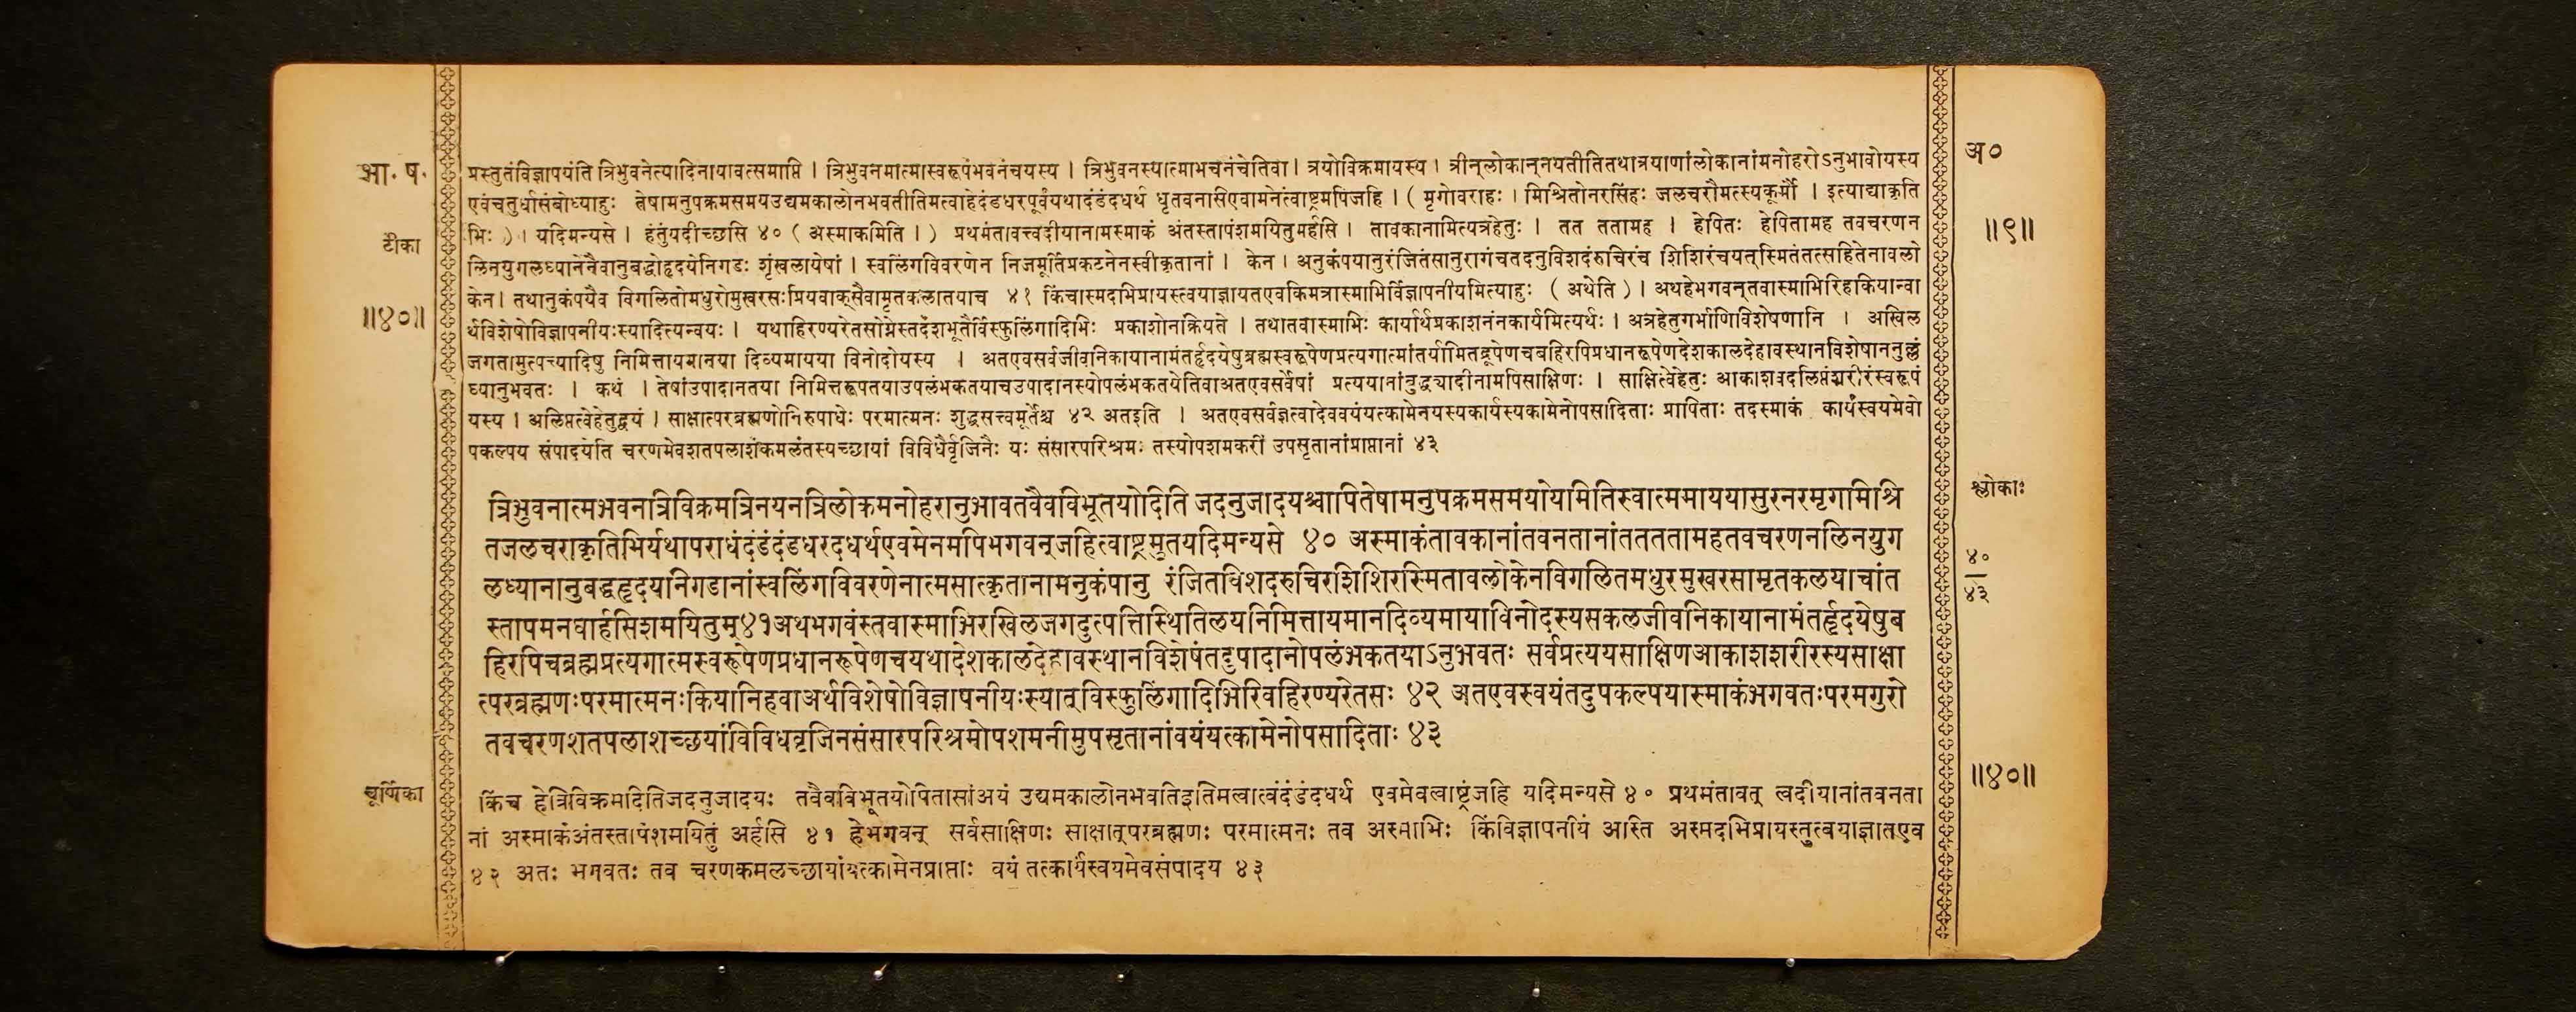 आ. ष. प्रस्तुतंविज्ञापयंति त्रिभुवनेत्यादिनायावत्समाप्ति । त्रिभुवनमात्मास्वरूपंभवनंचयस्य । त्रिभुवनस्यात्माभवनंचेतिवा । त्रयोविक्रमायस्य । त्रीन्लोकान्नयतीतितथात्रयाणांलोकानांमनोहरोऽनुभावोयस्य अ०
एवंचतुर्धासंबोध्याहुः तेषामनुपक्रमसमयउद्यमकालोनभवतीतिमत्वाहेदंडधरपूर्वंयथादंडंदधर्थ धृतवानसिएवामेनंत्वाष्ट्रमपिजहि । ( मृगोवराहः । मिश्रितोनरसिंहः जलचरौमत्स्यकूर्मौ । इत्याद्याकृति
टीका भिः ) । यदिमन्यसे । हंतुंयदीच्छसि ४० ( अस्माकमिति । ) प्रथमंतावत्त्वदीयानामस्माकं अंतस्तापंशमयितुमर्हसि । तावकानामित्यत्रहेतुः । तत ततामह । हेपितः हेपितामह तवचरणन ॥९॥
लिनयुगलध्यानेनैवानुबद्धोहृदयेनिगडः शृंखलायेषां । स्वलिंगविवरणेन निजमूर्तिप्रकटनेनस्वीकृतानां । केन । अनुकंपयानुरंजितंसानुरागंचतदनुविशदंरुचिरंच शिशिरंचयत्स्मितंतत्सहितेनावलो
केन । तथानुकंपयैव विगलितोमधुरोमुखरसःप्रियवाक्सैवामृतकलातयाच ४१ किंचास्मदभिप्रायस्त्वयाज्ञायतएवकिमत्रास्माभिर्विज्ञापनीयमित्याहुः ( अथेति ) । अथहेभगवन्तवास्माभिरिहकियान्वा
॥४०॥ र्थविशेषोविज्ञापनीयःस्यादित्यन्वयः । यथाहिरण्यरेतसोग्नेस्तदंशभूतैर्विस्फुलिंगादिभिः प्रकाशोनक्रियते । तथातवास्माभिः कार्यार्थप्रकाशनंनकार्यमित्यर्थः । अत्रहेतुगर्भाणिविशेषणानि । अखिल
जगतामुत्पत्त्यादिषु निमित्तायमानया दिव्यमायया विनोदोयस्य । अतएवसर्वजीवनिकायानामंतर्हृदयेषुब्रह्मस्वरूपेणप्रत्यगात्मांतर्यामितद्रूपेणचबहिरपिप्रधानरूपेणदेशकालदेहावस्थानविशेषाननुल्लं
घ्यानुभवतः । कथं । तेषांउपादानतया निमित्तरूपतयाउपलंभकतयाचउपादानस्योपलंभकतयेतिवाअतएवसर्वेषां प्रत्ययानांबुद्ध्यादीनामपिसाक्षिणः । साक्षित्वेहेतुः आकाशवदलिप्तंशरीरंस्वरूपं
यस्य । अलिप्तत्वेहेतुद्वयं । साक्षात्परब्रह्मणोनिरुपाधेः परमात्मनः शुद्धसत्त्वमूर्तेश्च ४२ अतइति । अतएवसर्वज्ञत्वादेववयंयत्कामेनयस्यकार्यस्यकामेनोपसादिताः प्रापिताः तदस्माकं कार्यंस्वयमेवो
पकल्पय संपादयेति चरणमेवशतपलाशंकमलंतस्यच्छायां विविधैर्वृजिनैः यः संसारपरिश्रमः तस्योपशमकरीं उपसृतानांप्राप्तानां ४३
श्लोकाः
त्रिभुवनात्मभवनत्रिविक्रमत्रिनयनत्रिलोकमनोहरानुभावतवैवविभूतयोदिति जदनुजादयश्चापितेषामनुपक्रमसमयोयमितिस्वात्ममाययासुरनरमृगमिश्रि
तजलचराकृतिभिर्यथापराधंदंडंदंडधरदधर्थएवमेनमपिभगवन्जहित्वाष्ट्रमुतयदिमन्यसे ४० अस्माकंतावकानांतवनतानांततततामहतवचरणनलिनयुग
४०
४३
लध्यानानुबद्धहृदयनिगडानांस्वलिंगविवरणेनात्मसात्कृतानामनुकंपानु रंजितविशदरुचिरशिशिरस्मितावलोकेनविगलितमधुरमुखरसामृतकलयाचांत
स्तापमनघार्हसिशमयितुम्४१अथभगवंस्तवास्माभिरखिलजगदुत्पत्तिस्थितिलयनिमित्तायमानदिव्यमायाविनोदस्यसकलजीवनिकायानामंतर्हृदयेषुब
हिरपिचब्रह्मप्रत्यगात्मस्वरूपेणप्रधानरूपेणचयथादेशकालदेहावस्थानविशेषंतदुपादानोपलंभकतयाऽनुभवतः सर्वप्रत्ययसाक्षिणआकाशशरीरस्यसाक्षा
त्परब्रह्मणःपरमात्मनःकियानिहवाअर्थविशेषोविज्ञापनीयःस्यात्विस्फुलिंगादिभिरिवहिरण्यरेतसः ४२ अतएवस्वयंतदुपकल्पयास्माकंभगवतःपरमगुरो
तवचरणशतपलाशच्छयांविविधवृजिनसंसारपरिश्रमोपशमनीमुपसृतानांवयंयत्कामेनोपसादिताः ४३
॥४०॥
चूर्णिका किंच हेत्रिविक्रमदितिजदनुजादयः तवैवविभूतयोपितासांअयं उद्यमकालोनभवतिइतिमत्वात्वंदंडंदधर्थ एवमेवत्वाष्ट्रंजहि यदिमन्यसे ४० प्रथमंतावत् त्वदीयानांतवनता
नां अस्माकंअंतस्तापंशमयितुं अर्हसि ४१ हेभगवन् सर्वसाक्षिणः साक्षात्परब्रह्मणः परमात्मनः तव अस्माभिः किंविज्ञापनीयं अस्ति अस्मदभिप्रायस्तुत्वयाज्ञातएव
४२ अतः भगवतः तव चरणकमलच्छायांयत्कामेनप्राप्ताः वयं तत्कार्यंस्वयमेवसंपादय ४३